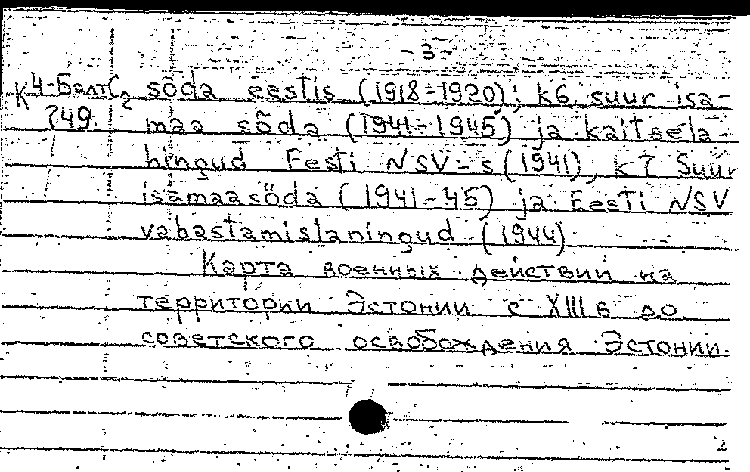 - 3 -
К 4-БалтС2 sõda eestis (1918-1920); k6 suur isa-
749. maa sõda (1941-1945) ja kaitsela-
hingud Eesti NSV-s (1941), k7 Suur
isamaasõda (1941-45) ja Eesti NSV
vabastamislaningud (1944)
Карта военных действий на
территории Эстонии с XIII в до
советского освобождения Эстонии.
2